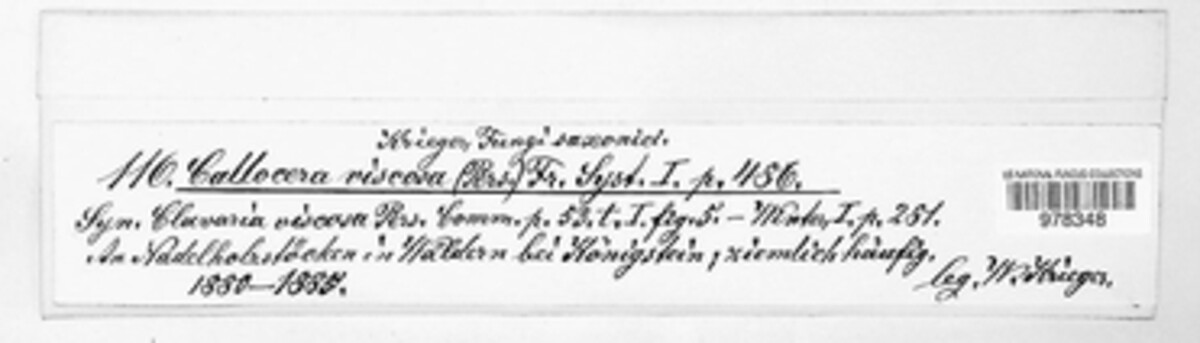 Krieger, Fungi saxonici.
116. Callocera viscosa (Prs.) Fr. Syst. I. p. 486.
Syn. Clavaria viscosa Prs. Comm. p. 53. t. I. fig. 5. — Winter, I. p. 281.
An Nadelholzstöcken in Wäldern bei Königstein, ziemlich häufig.
1880—1885.
leg. W. Krieger.
US NATIONAL FUNGUS COLLECTIONS
978348